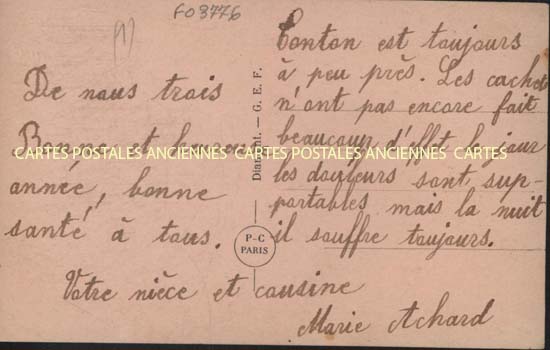 FO3776
(1)
De nous trois
Bonne et heureuse
année, bonne
santé à tous.
Tonton est toujours
à peu près. Les cachets
n'ont pas encore fait
beaucoup d'effet le jour
les douleurs sont sup-
portables mais la nuit
il souffre toujours.
Votre nièce et cousine
Marie Achard
Diamant. — G. E. F.
P-C
PARIS
CARTES POSTALES ANCIENNES CARTES POSTALES ANCIENNES CARTES